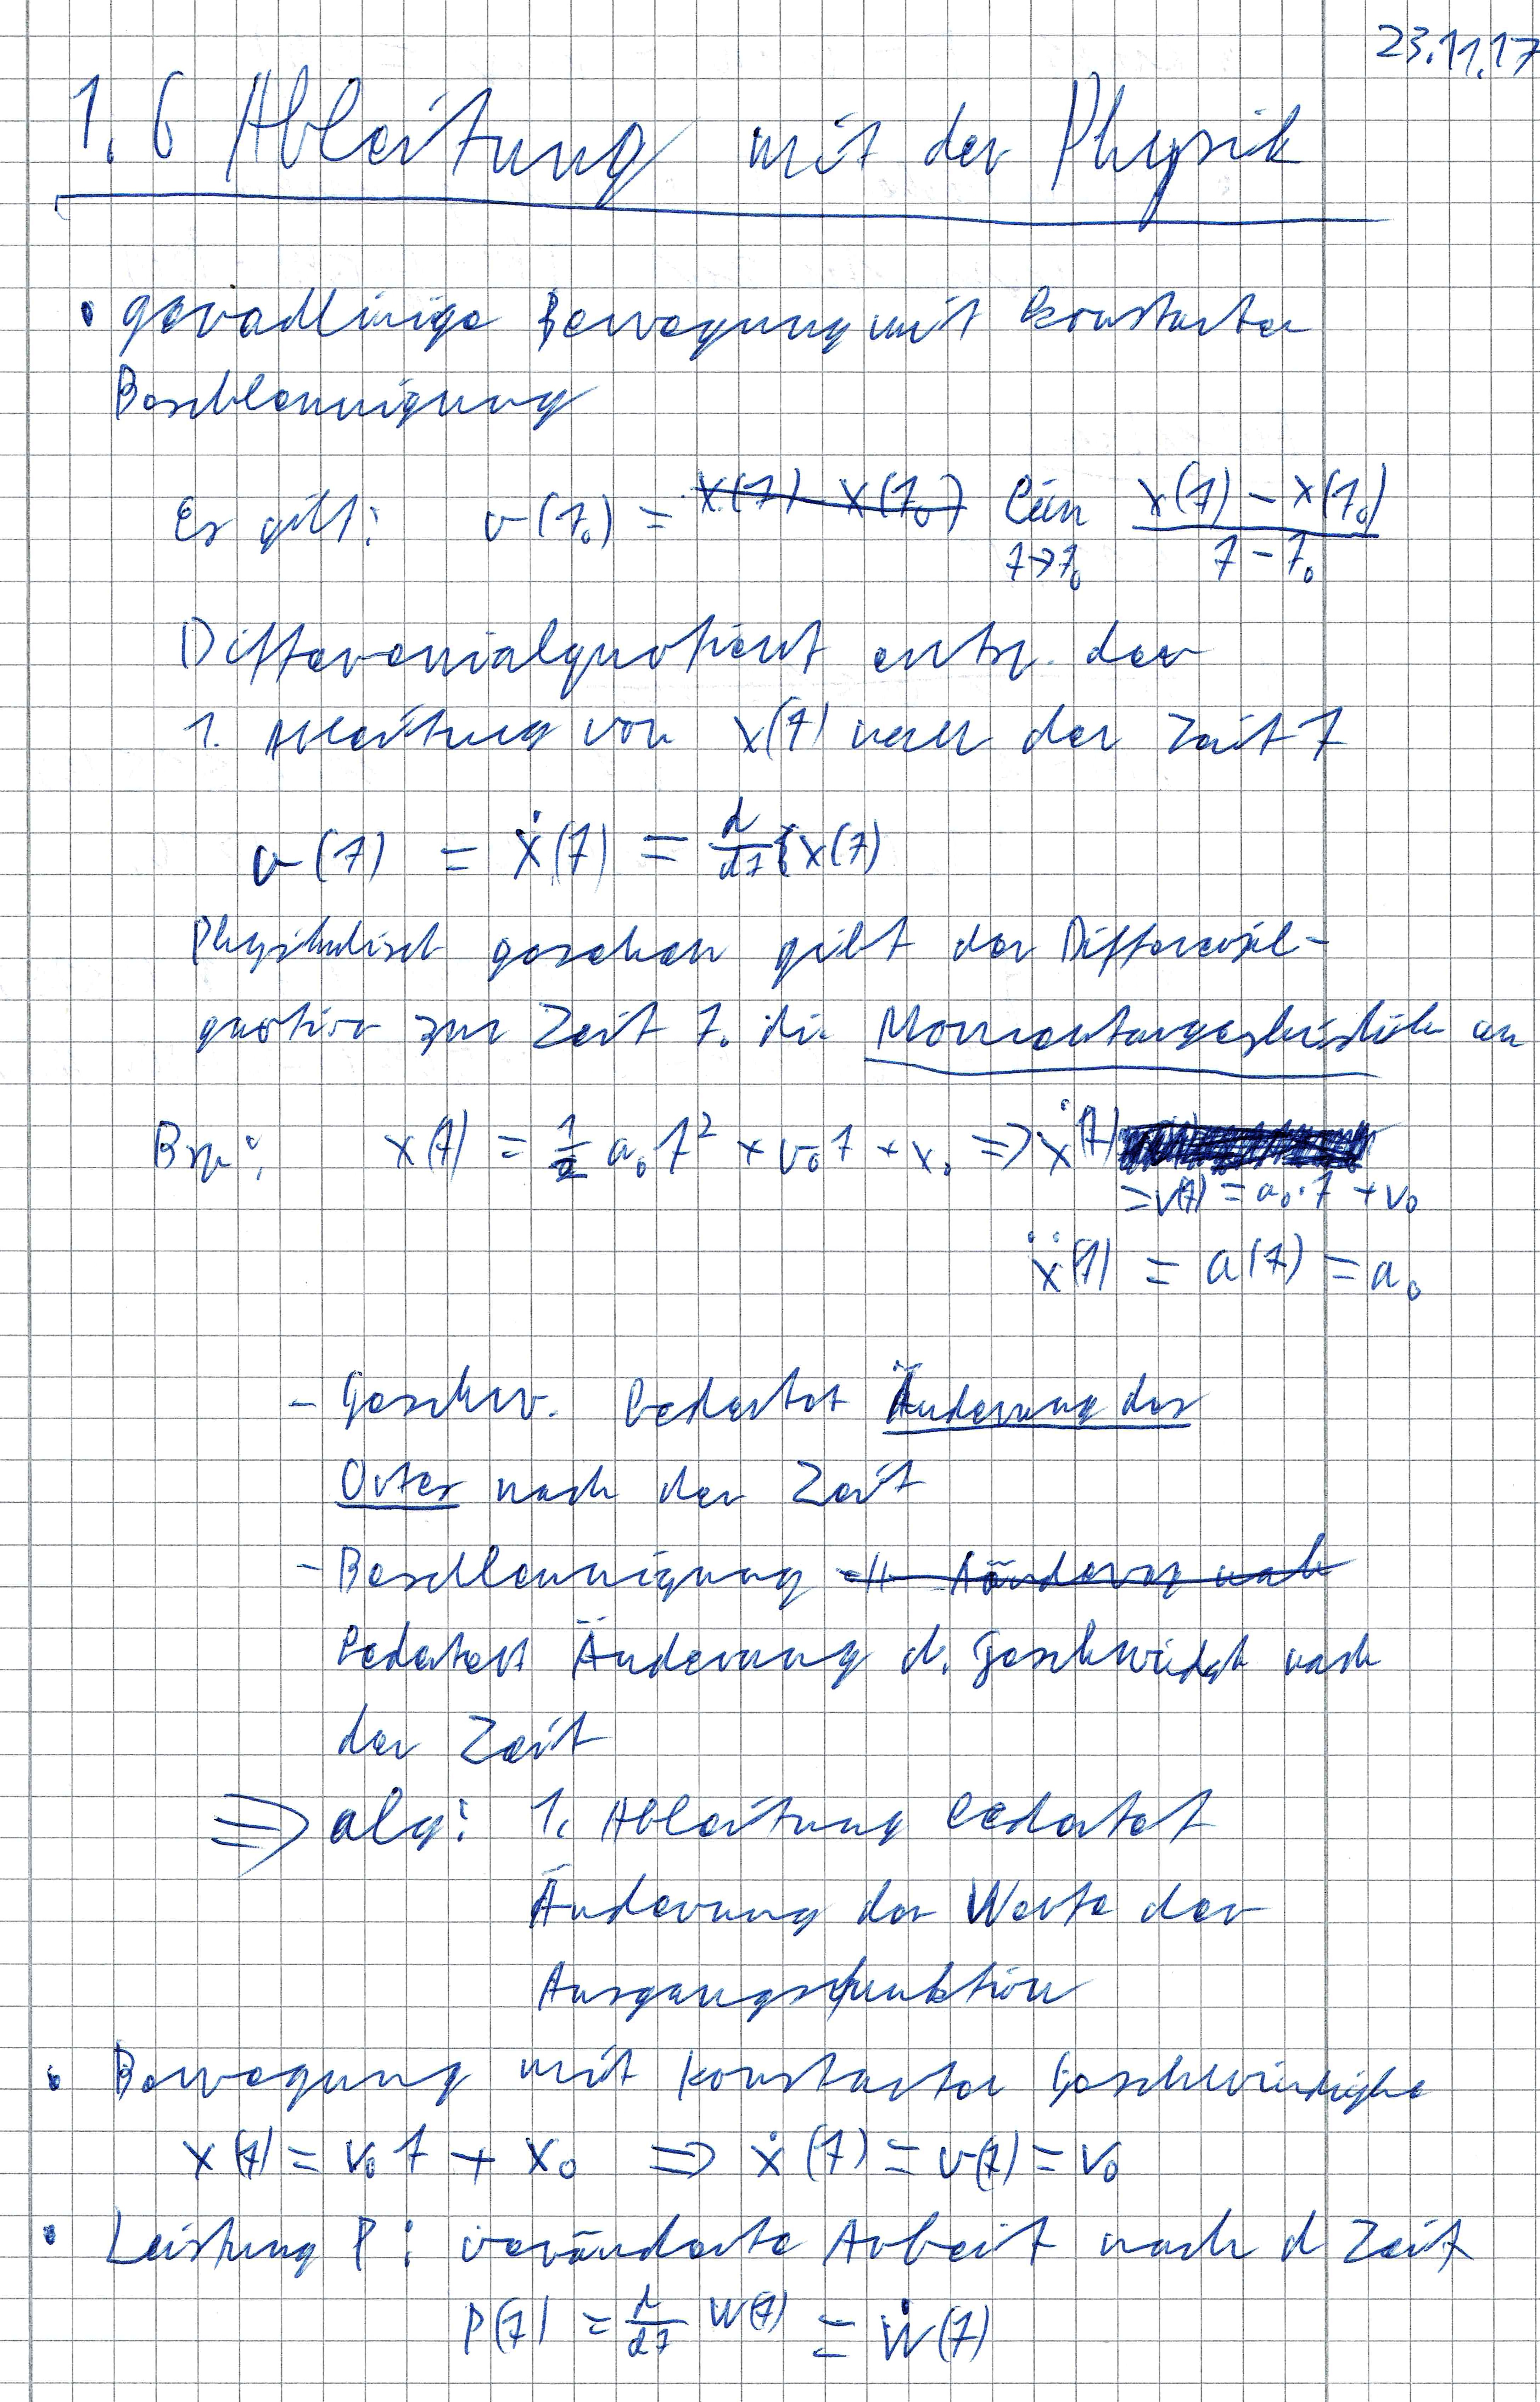 23.11.17
1.6 Ableitung mit der Physik
• geradlinige Bewegung mit konstanter
Beschleunigung
Es gilt: v(t₀) = x(t) - x(t₀) lim t→t₀ (x(t) - x(t₀))/(t - t₀)
Differenialquotient entsp. der
1. Ableitung von x(t) nach der Zeit t
v(t) = ẋ(t) = d/dt x(t)
Physikalisch gesehen gibt der
quotien zur Zeit t₀ die an
Bsp: x(t) = 1/2 a₀ t² + v₀ t + x₀ => ẋ(t)
= v(t) = a₀ · t + v₀
ẍ(t) = a(t) = a₀
- Geschw. bedeutet Änderung des
Ortes nach der Zeit
- Beschleunigung
bedeutet Änderung d. nach
der Zeit
=> alg: 1. Ableitung bedeutet
Änderung der Werte der
Ausgangsfunktion
• Bewegung mit konstanter
x(t) = v₀ t + x₀ => ẋ(t) = v(t) = v₀
• Leistung P: veränderte Arbeit nach d Zeit
P(t) = d/dt W(t) = Ẇ(t)